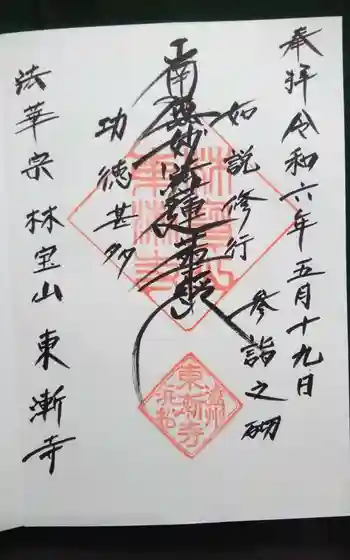 奉拝令和六年五月十九日
参詣之砌
如説修行
南無妙法蓮華経
功徳甚多
法華宗林宝山東漸寺
東漸寺